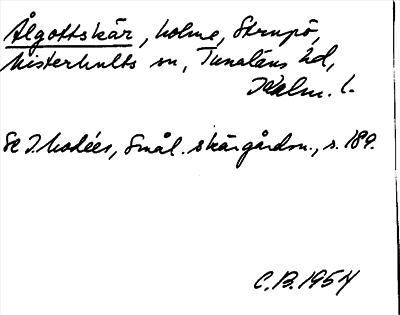 Ålgottskär, holme, Strupö,
Misterhults sn, Tunaläns hd,
Kalm. l.
Se I. Modéer, Smål. skärgårdsn., s. 189.
C.B. 1954